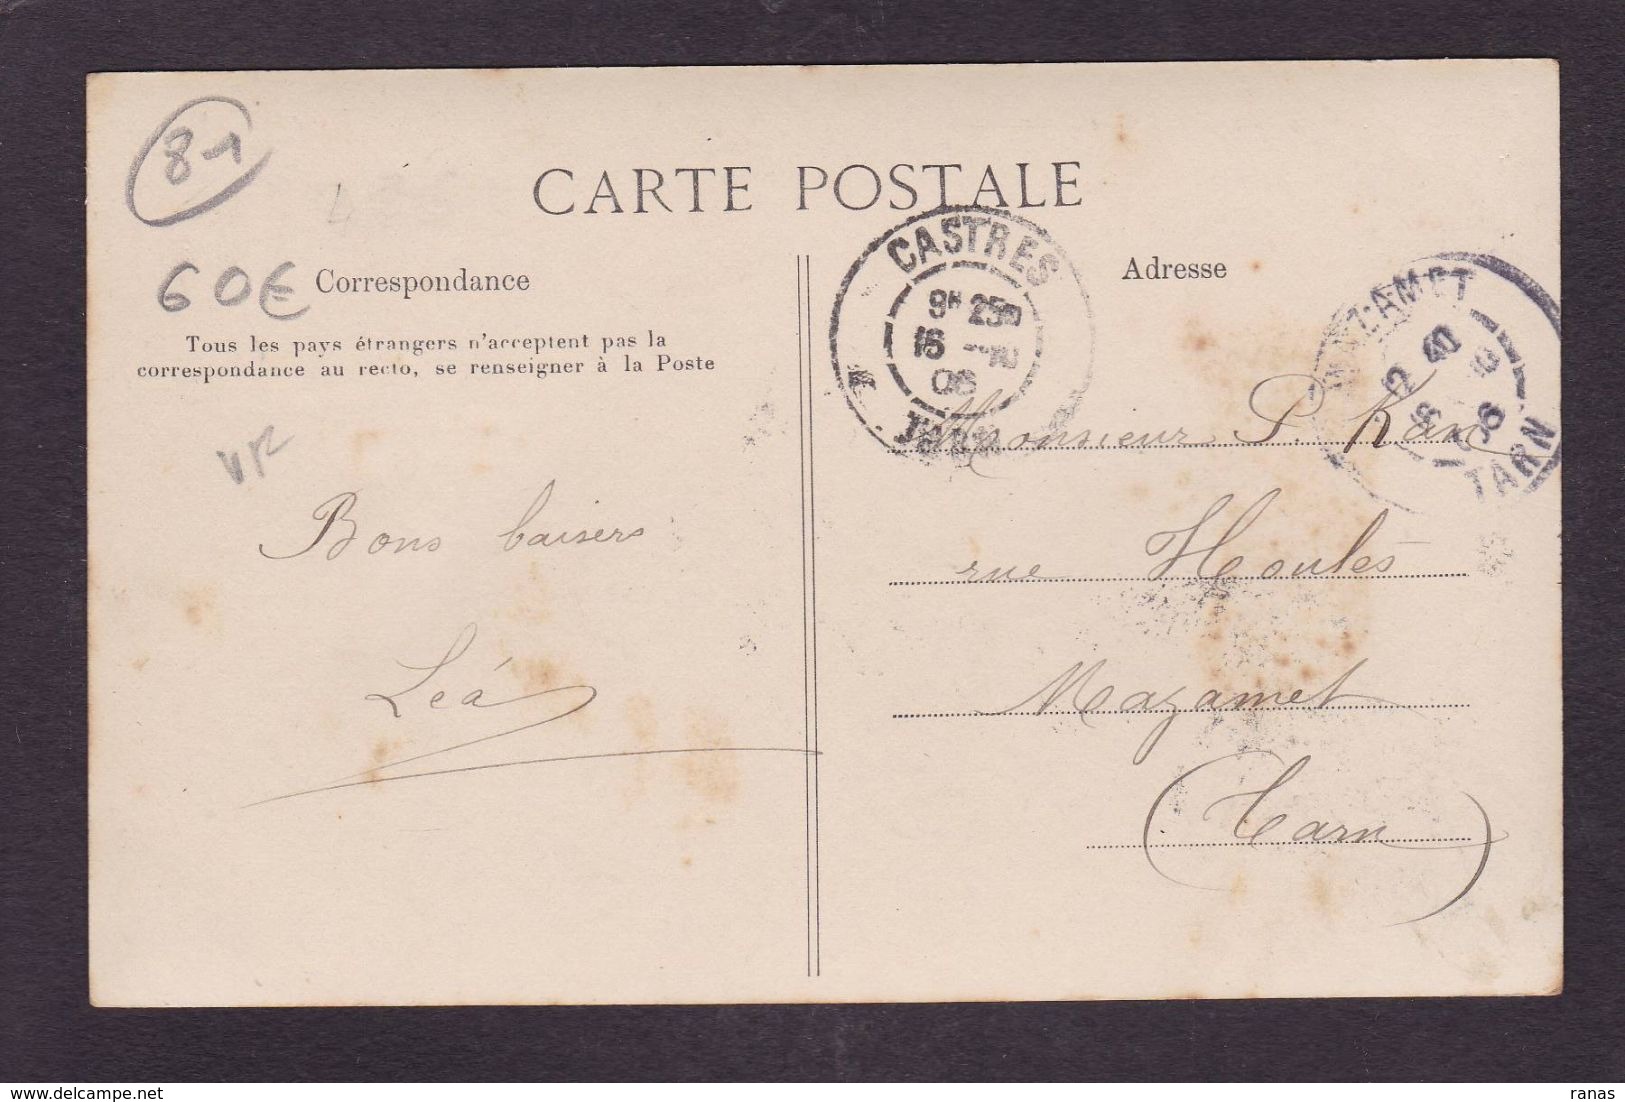 81
CARTE POSTALE
60€
Correspondance
Tous les pays étrangers n'acceptent pas la
correspondance au recto, se renseigner à la Poste
Bons baisers
Leá
CASTRES
9H 25
16
TARN
Adresse
MAZAMET
12 40
16
TARN
Monsieur P.
rue Houlès
Mazamet
(Tarn)
delcampe.net
ranas